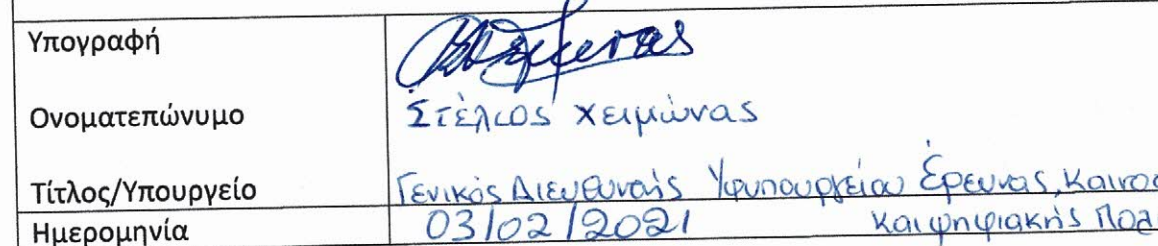 Υπογραφή
Ονοματεπώνυμο Στέλιος Χειμώνας
Τίτλος/Υπουργείο Γενικός Διευθυντής Υφυπουργείου Έρευνας, Καινο
Ημερομηνία 03/02/2021 και ψηφιακής Πολι